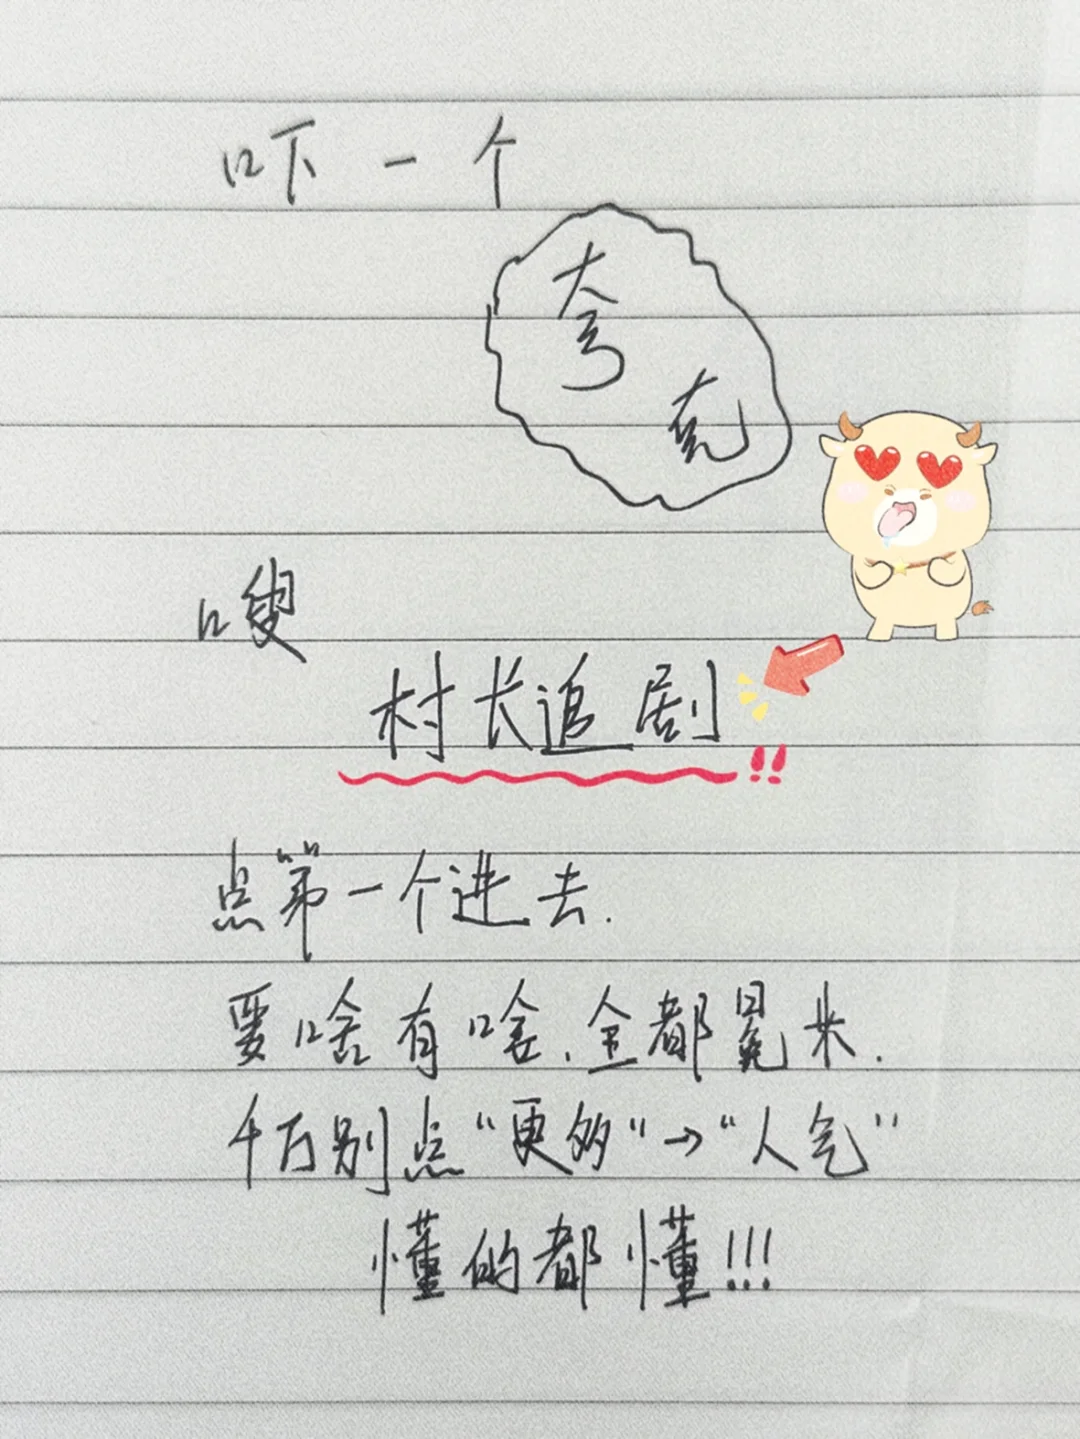 吓一个
夸克
嗖
村长追剧
!!
点第一个进去.
要啥有啥、全都冕来.
千万别点“更多”→“人气”
懂的都懂!!!